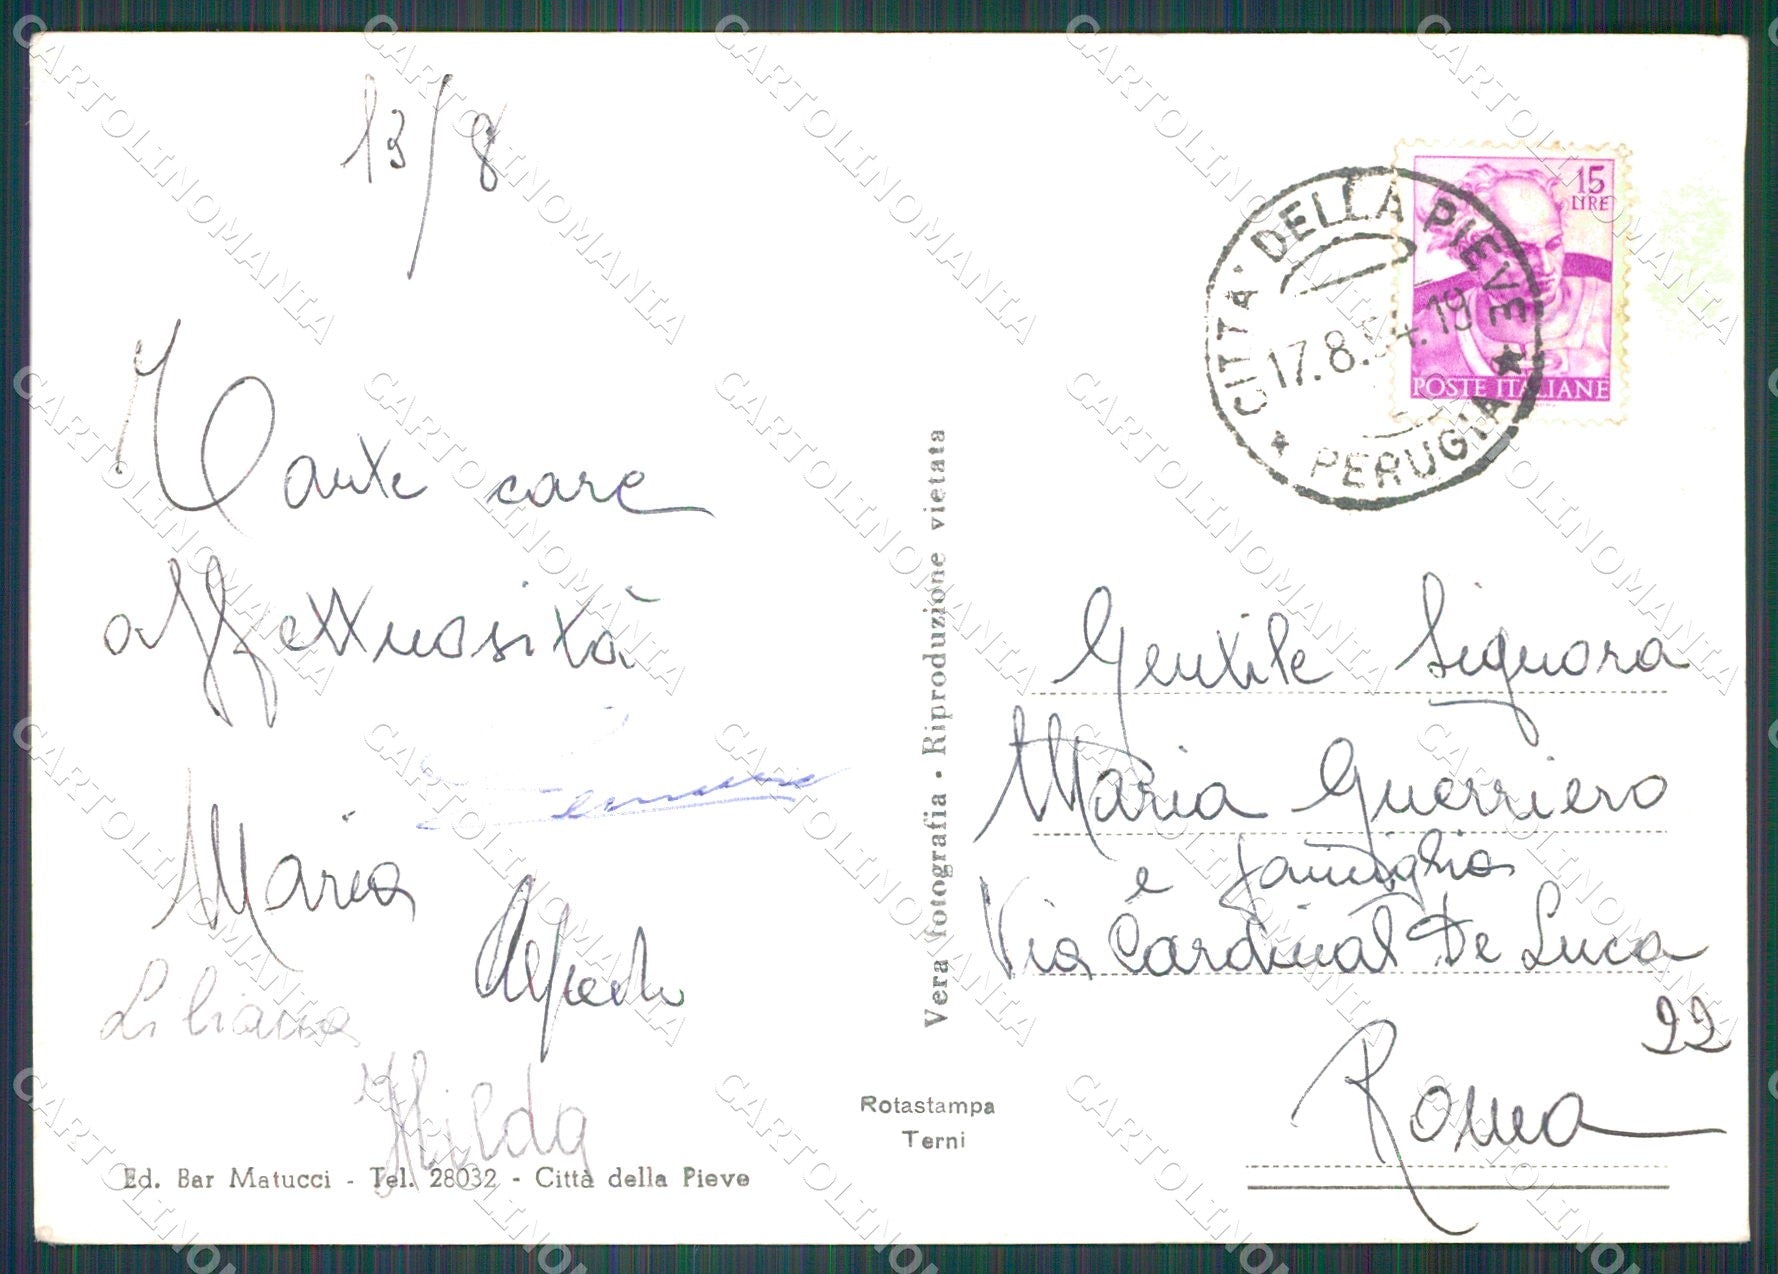 13/8
Tante care
affettuosità
Maria
Alfredo
Liliana
Hilda
Ed. Bar Matucci - Tel. 28032 - Città della Pieve
Vera fotografia - Riproduzione vietata
Rotastampa
Terni
15
LIRE
POSTE ITALIANE
CITTA' DELLA PIEVE
17.8. 19
PERUGIA
Gentile Signora
Maria Guerriero
e famiglia
Via Cardinal De Luca
22
Roma
CARTOLINOMANIA